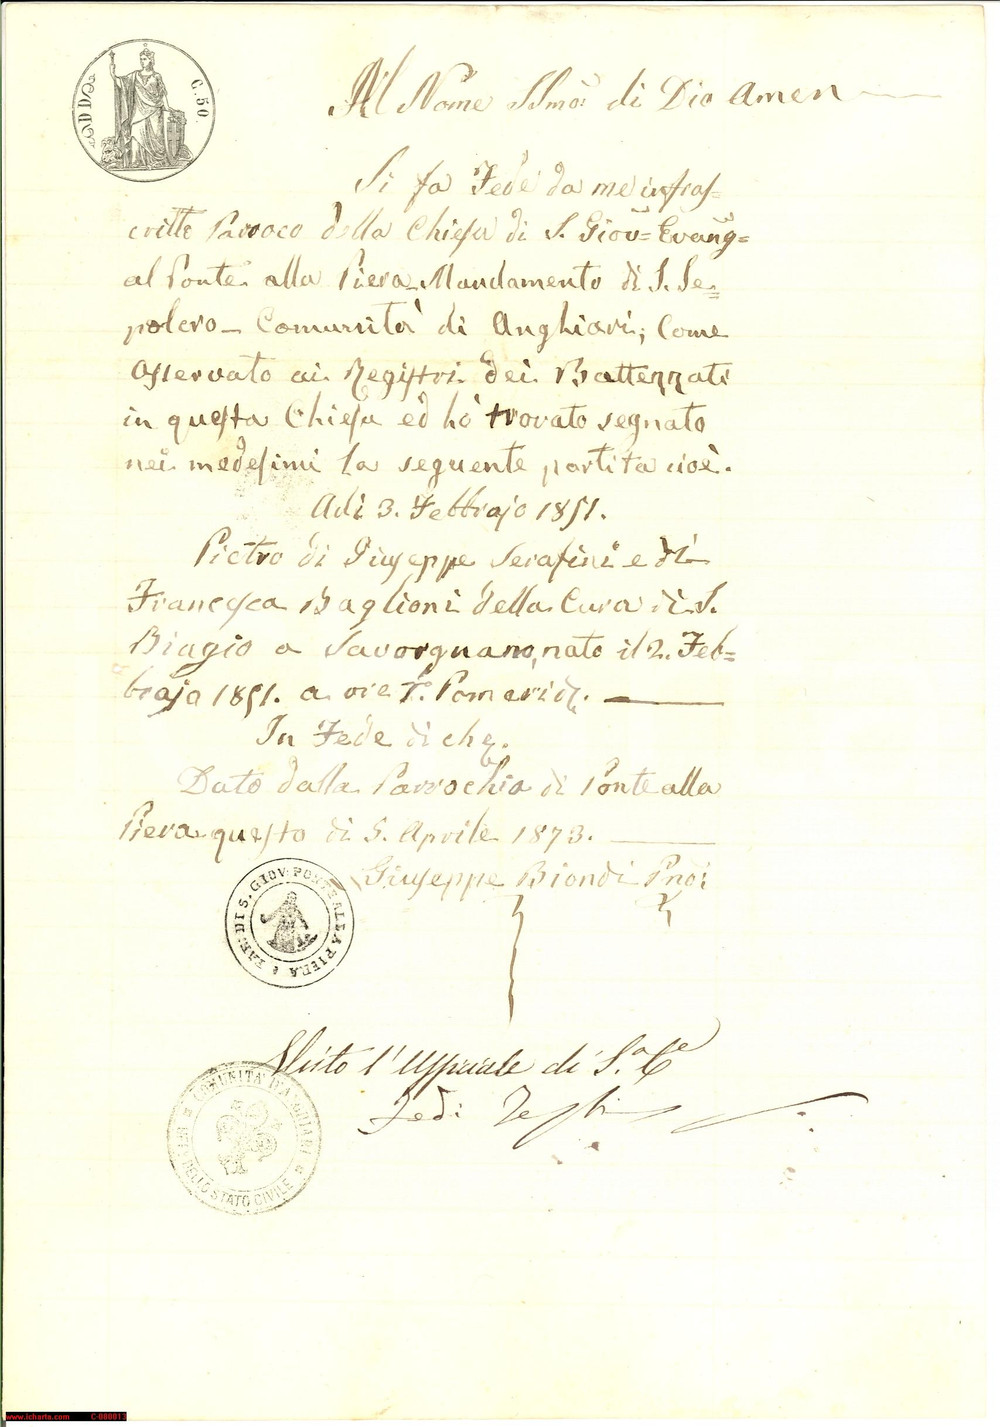 C. 50.
Al Nome SSmo: di Dio Amen
Si fa Fede da me infras=
critto Parroco della Chiesa di S. Giov= Evang=
al Ponte alla Piera Mandamento di S. Se=
polcro Comunità di Anghiari, Come
osservato ai Registri dei Battezzati
in questa Chiesa ed hò trovato segnato
nei medesimi la seguente partita cioè.
Adì 3. Febbrajo 1851.
Pietro di Giuseppe Serafini e di
Francesca Baglioni della Cura di S.
Biagio a Savorgnano, nato il 2. Feb=
brajo 1851. a ore Pomerid.
In Fede di che.
Dato dalla Parrochia di Ponte alla
Piera questo dì 5. Aprile 1873.
Giuseppe Biondi
DI S. GIOV: PONTE ALLA PIERA
Visto l'Uffiziale di S.a C.e
Fedi
COMUNITA D'ANGHIARI
DELLO STATO CIVILE
www.icharta.com C-000013